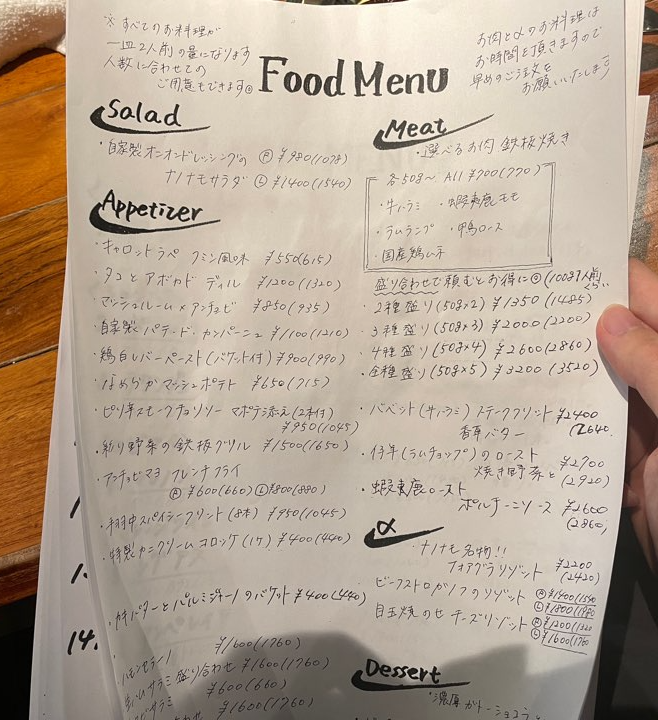 ※すべてのお料理が
一皿2人前の量になります
人数に合わせての
ご用意もできます。
Food Menu
お肉とαのお料理は
お時間を頂きますので
早めのご注文を
お願いいたします
Salad
・自家製オニオンドレッシングの Ⓡ ¥980(1078)
ナノナモサラダ Ⓛ ¥1400(1540)
Appetizer
・キャロットラペ クミン風味 ¥550(615)
・タコとアボカド ディル ¥1200(1320)
・マッシュルーム×アンチョビ ¥850(935)
・自家製 パテ・ド・カンパーニュ ¥1100(1210)
・鶏白レバーペースト(バケット付) ¥900(990)
・なめらかマッシュポテト ¥650(715)
・ピリ辛スモークチョリソー マポテ添え(2本付)
¥950(1045)
・彩り野菜の鉄板グリル ¥1500(1650)
・アンチョビマヨ フレンチフライ
Ⓡ ¥600(660) Ⓛ ¥800(880)
・手羽中スパイシーフリット(8本) ¥950(1045)
・特製カニクリームコロッケ(1ケ) ¥400(440)
バターとパルミジャーノのバケット ¥400(440)
¥1600(1760)
サラミ盛り合わせ ¥1600(1760)
¥600(660)
¥1600(1760)
14.
Meat
・選べるお肉 鉄板焼き
各50g~ All ¥700(770)
・牛ハラミ ・蝦夷鹿モモ
・ラムランプ ・鴨ロース
・国産鶏ムネ
盛り合わせで頼むとお得に (100g1人前くらい
・2種盛り(50g×2) ¥1350(1485)
・3種盛り(50g×3) ¥2000(2200)
・4種盛り(50g×4) ¥2600(2860)
・全種盛り(50g×5) ¥3200(3520)
・バベット(牛ハラミ)ステークフリット ¥2400
香草バター (2640)
・仔羊(ラムチョップ)のロースト
焼き野菜と ¥2700
(2920)
・蝦夷鹿ロースト
ポルチーニソース ¥2600
(2860)
α
・ナノナモ名物!!
フォアグラリゾット ¥2200
(2420)
ビーフストロガノフのリゾット Ⓡ ¥1400(1540
Ⓛ ¥1800(1980
目玉焼のせチーズリゾット Ⓡ ¥1200(1320
Ⓛ ¥1600(1760
Dessert
・濃厚ガトーショコラ